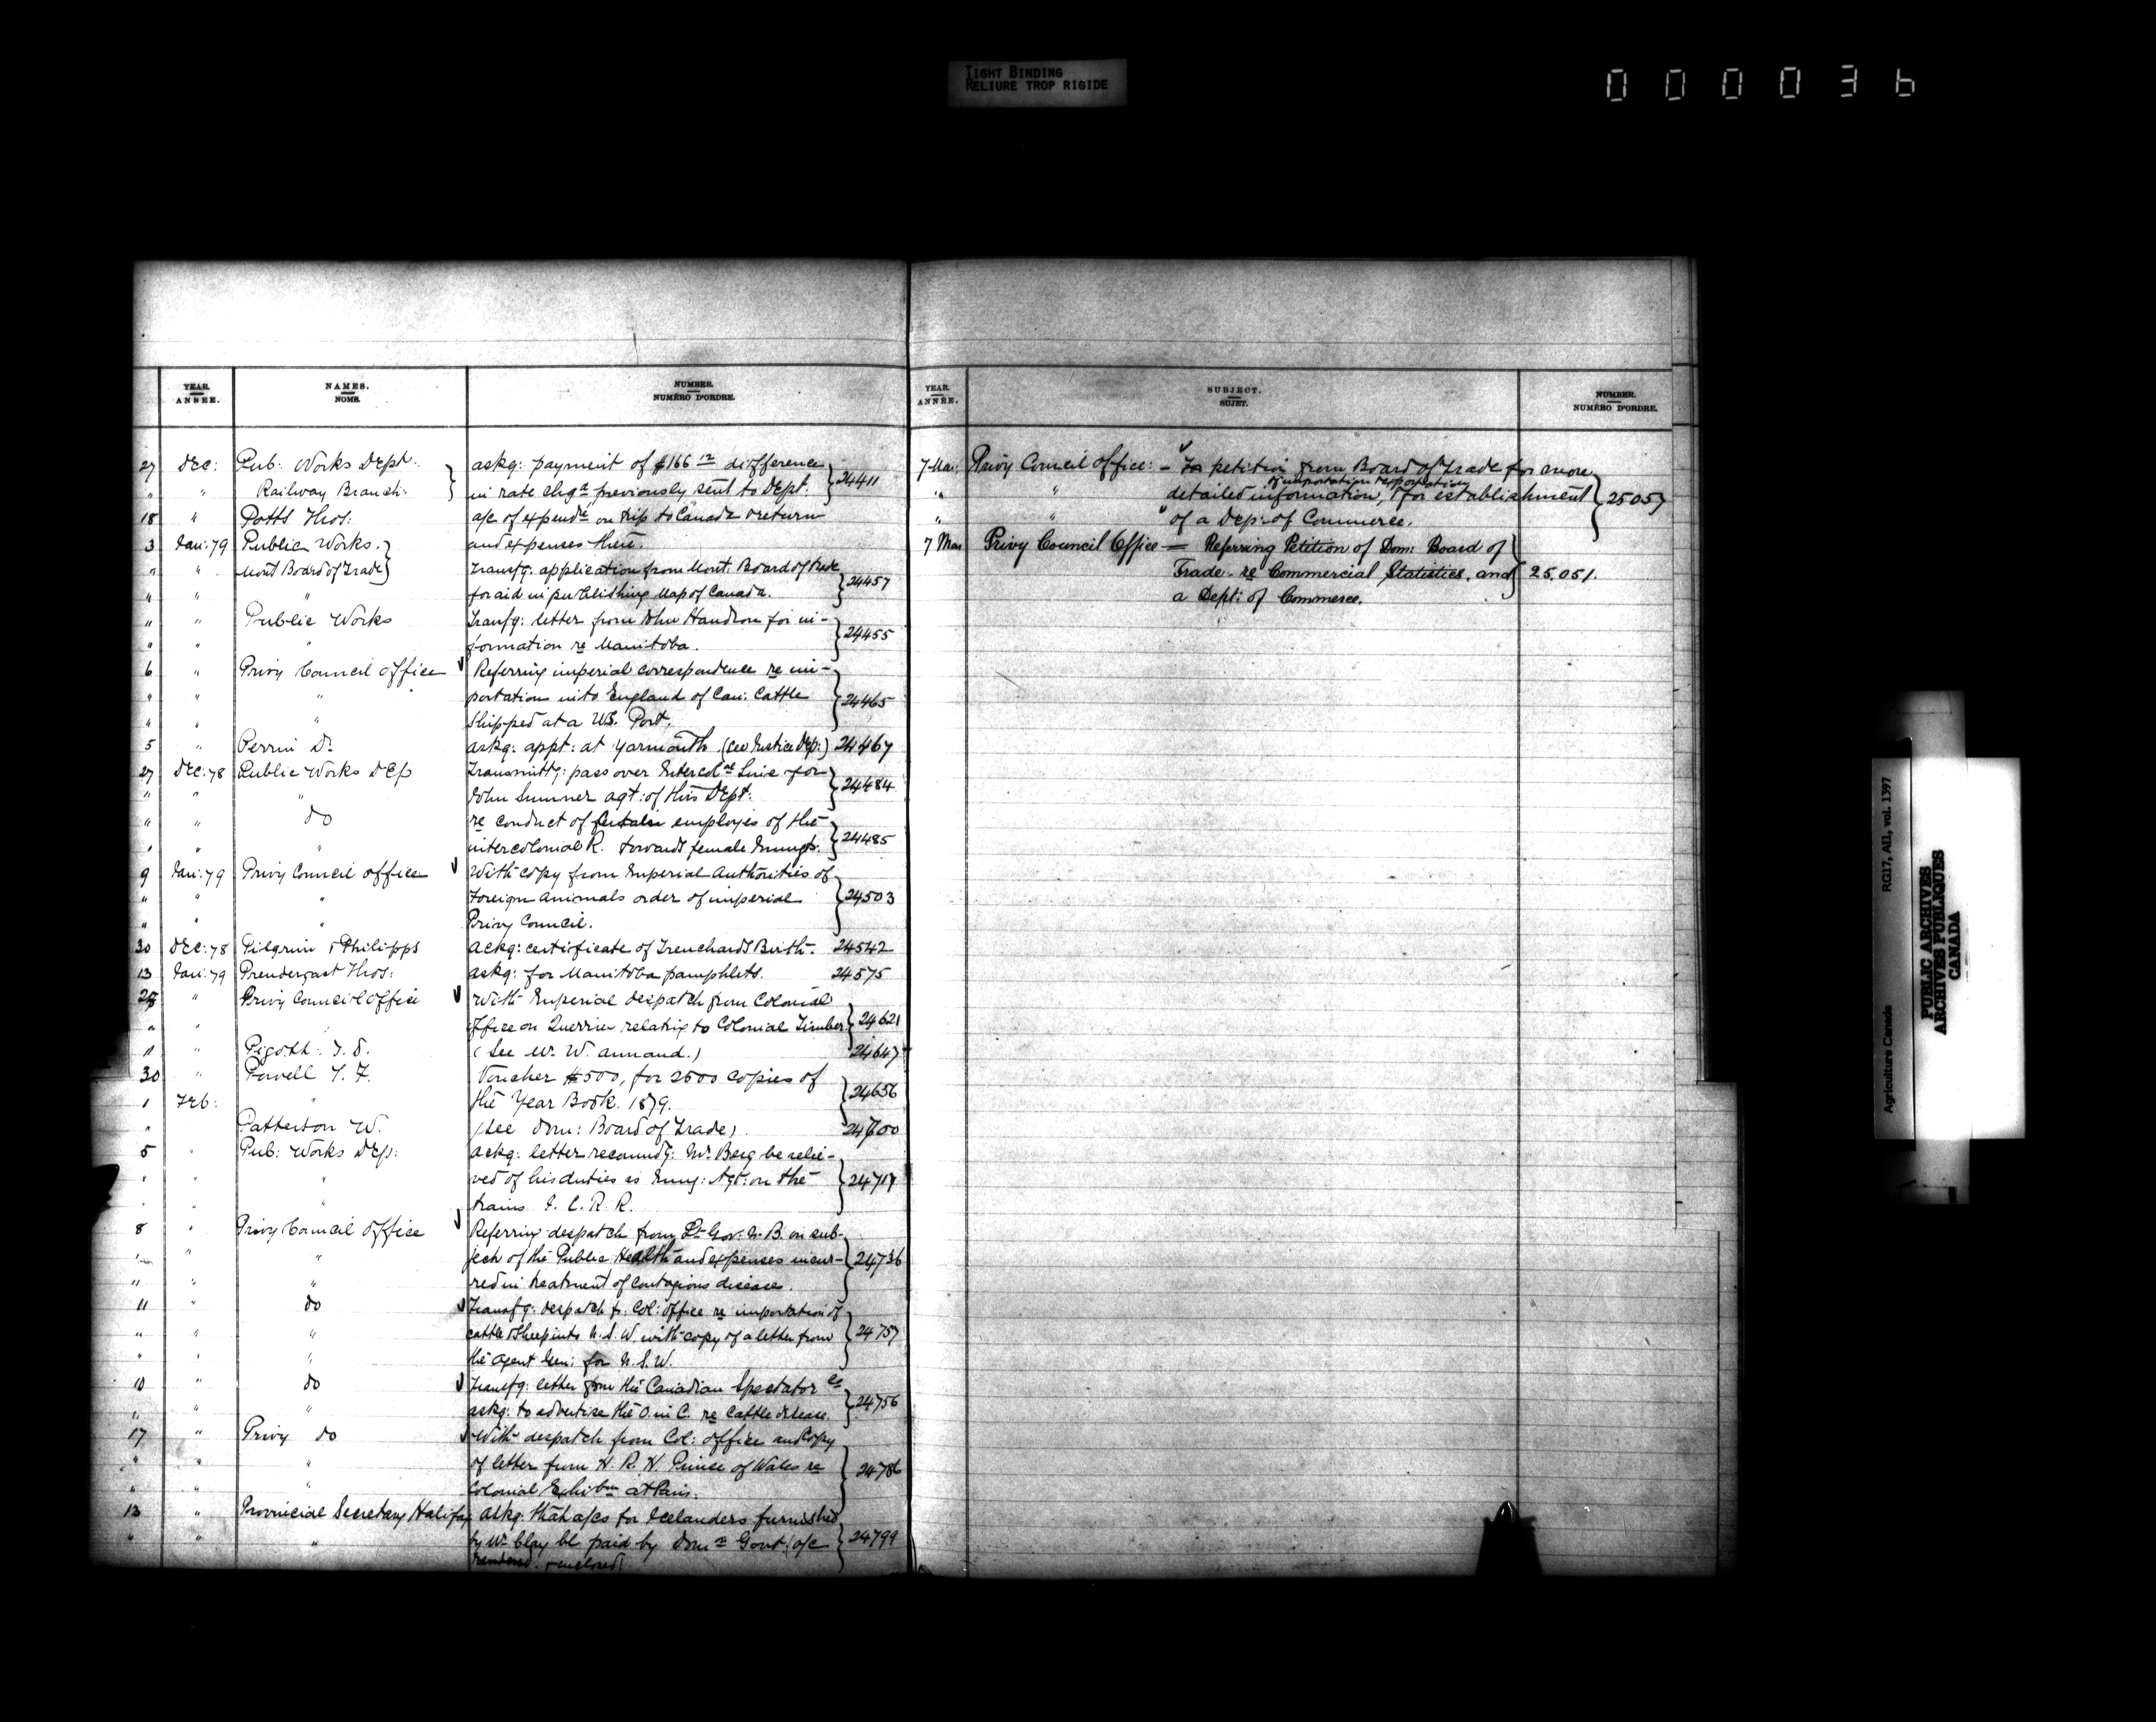 TIGHT BINDING
RELIURE TROP RIGIDE
000036
YEAR. ANNÉE. NAMES. NOMS. NUMBER. NUMÉRO D'ORDRE.
27 Dec: Pub: Works Dept: askg: payment of $166 12 difference
" " Railway Branch: in rate chgd previously sent to Dept. 24411
18 " Potts Thos: a/c of expendre on trip to Canada & return
3 Jan: 79 Public Works. and expenses there.
" " Mont Board of Trade Transfg: application from Mont: Board of Trade
" " " for aid in publishing Map of Canada. 24457
" " Public Works Transfg: letter from John for in-
" " formation re Manitoba. 24455
6 " Privy Council Office Referring imperial correspondence re im-
" " " portation into England of Can: Cattle 24465
" " " Shipped at a U.S. Port.
5 " Perrin D. askg: appt: at Yarmouth (see Justice Dep:) 24467
27 Dec: 78 Public Works Dep Transmittg: pass over Intercolal Line for
" " " John Sumner agt: of this Dept: 24484
" " do re conduct of certain employes of the
" " " intercolonial R. towards female Immgts. 24485
9 Jan: 79 Privy Council office With copy from Imperial Authorities of
" " " Foreign Animals order of imperial 24503
" " " Privy Council.
30 Dec: 78 Pilgrim & Philipps ackg: certificate of Trenchards Birth. 24542
13 Jan: 79 Prendergast Thos: askg: for Manitoba pamphlets. 24575
" Privy Council Office With Imperial despatch from Colonial
" " " Office on Querries relating to Colonial Timber 24621
11 " Pigott: J. S. (See W. W. annand.) 24647
30 " Powell T. F. Voucher $500, for 2500 copies of
1 Feb: " the Year Book. 1879. 24656
" Patterson W. (see Dom: Board of Trade) 24700
5 " Pub: Works Dep: ackg: letter recommdg: Mr. Berg be relie-
" " " ved of his duties as Immg: Agt: on the 24717
" " " trains I. C. R. R.
8 " Privy Council Office Referring despatch from Lt Gov: N. B. on sub-
" " " ject of the Public Health and expenses incur- 24736
" " " red in treatment of contagious disease.
11 " do Transfg: despatch fr: Col: office re importation of
" " " cattle & Sheep into N. S. W. with copy of a letter from 24757
" " " the agent Gen: for N. S. W.
10 " do Transfg: letter from the Canadian Spectator Co
" " " askg: to advertise the O. in C. re Cattle disease. 24756
17 " Privy do With despatch from Col: office and Copy
" " " of letter from H. R. H. Prince of Wales re 24786
" " Colonial Exhibon at Paris.
13 " Provincial Secretary Halifax askg: that a/cs for Icelanders furnished
" " " by Wm Clay be paid by Domn Govt (a/c 24799
rendered & enclosed)
YEAR. ANNÉE. SUBJECT. SUJET. NUMBER. NUMÉRO D'ORDRE.
7 Mar: Privy Council Office: - petition from Board of Trade for more
of importation & exportation
" " detailed information, & for establishment 25057
" " of a Dep: of Commerce.
7 Mar Privy Council Office — Referring Petition of Dom: Board of
Trade - re Commercial Statistics, and 25.051.
a Dept: of Commerce.
Agriculture Canada RG17, AII, vol. 1397
PUBLIC ARCHIVES
ARCHIVES PUBLIQUES
CANADA